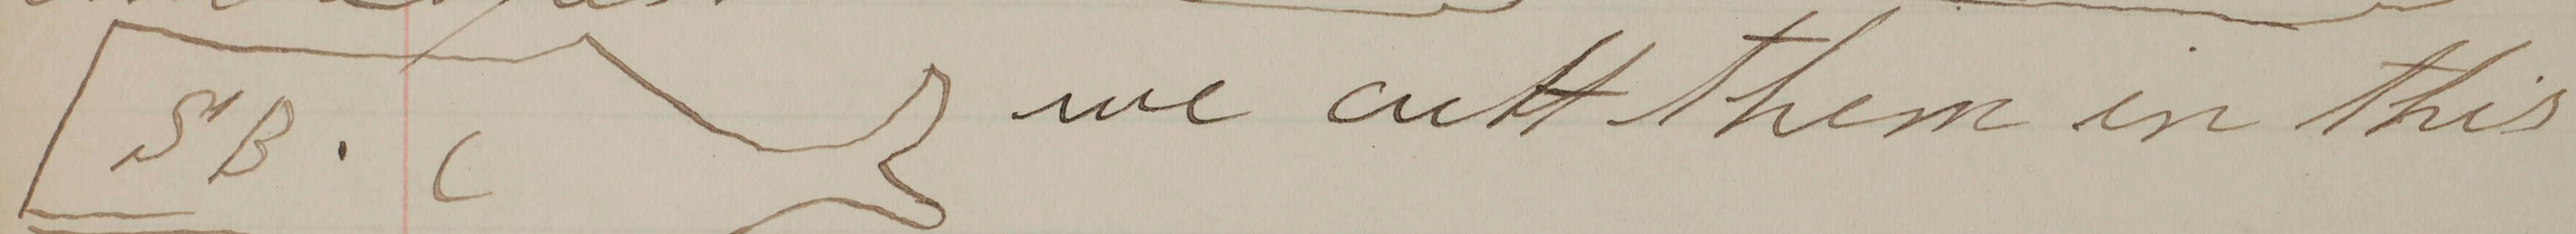 SB. C we cutt them in this